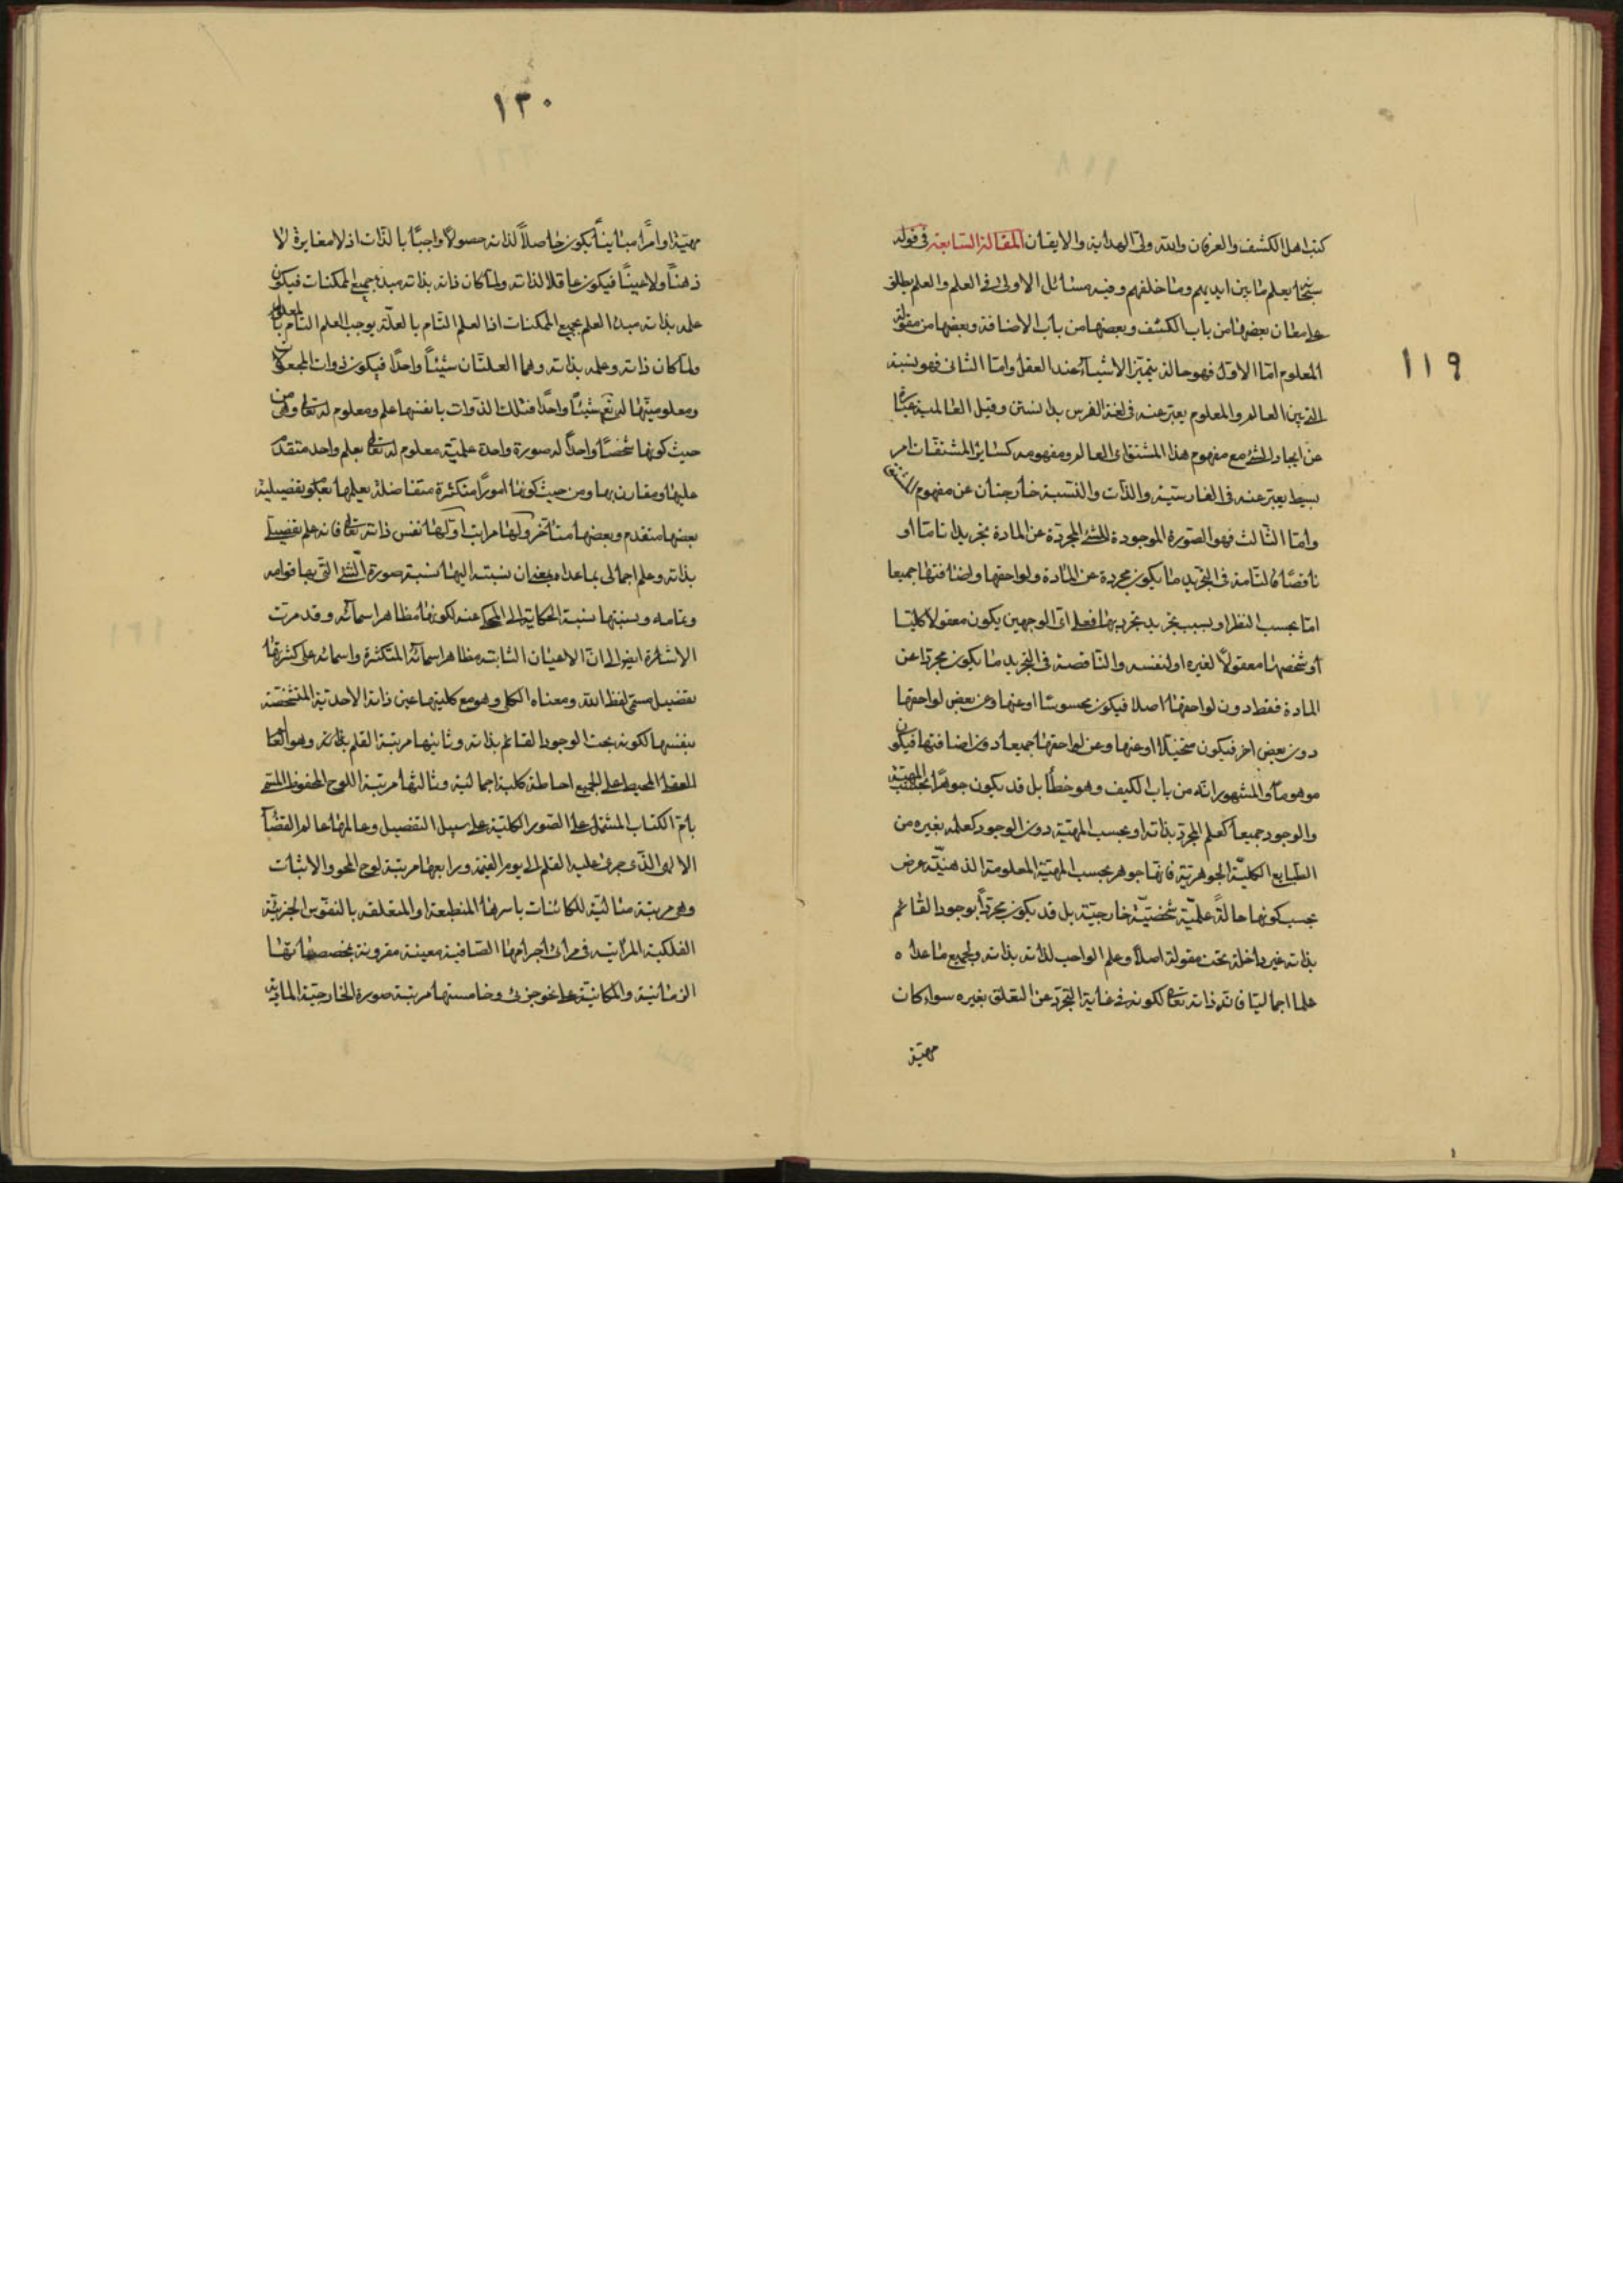 ١١٩
كتب اهل الكشف والعرفان والله ولى الهداية والايقان المقالة السابعة فى قوله
يعلم ما بين ايديهم وما خلفهم وفيه مسائل الاولى فى العلم والعلم يطلق
على معان بعضها من باب الكشف وبعضها من باب الاضافة وبعضها من مقولة
المعلوم امّا الاوّل فهو حالة بتميز الاشياء عند العقل وامّا الثانى فهو نسبة
بين العالم والمعلوم يعبّر عنه فى لغة الفرس بدانستن وقيل العالمية عبارة
عن ايجاد الشئ مع مفهوم هذا المشتق اى العالم ومفهومه كسائر المشتقات امر
بسيط يعبّر عنه فى الفارسيّة والذات والنسبة خارجتان عن مفهوم المشتق
وامّا الثالث فهو الصورة الموجودة للشئ المجردة عن المادة تجريدا تامّا او
ناقصًا فالتامة فى التجريد ما يكون مجردة عن المادة ولواحقها واضافتها جميعا
امّا بحسب الفطرا وبسبب تجريد مجرد لها فعلى اىّ الوجهين يكون معقولا كليّا
او شخصها معقولاً لغيره او لنفسه والناقصة فى التجريد ما يكون مجردا عن
المادة فقط دون لواحقها اصلا فيكون محسوسا او عنها وعن بعض لواحقها
دون بعض اخر فيكون متخيّلا او عنها وعن لواحقها جميعا دون اضافتها فيكون
موهوماً والمشهور انّه من باب الكيف وهو خطأ بل قد يكون جوهرًا بحسب المهيّة
والوجود جميعا كعلم المجرّد بذاته او بحسب المهيّة دون الوجود كعلمه بغيره من
الطبايع الكليّة الجوهريّة فانّها جوهر بحسب المهيّة المعلومة الذهنيّة عرض
بحسب كونها حالةً علميّة شخصيّة خارجيّة بل قد يكون مجرّداً بوجود القائم
بذاته غير داخلة تحت مقولة اصلا وعلم الواجب لذاته بذاته وبجميع ما عداه
علما اجماليّا فانّه ذاته تعالى لكونه فى غاية التجرّد عن التعلق بغيره سواء كان
مهيّة
١٣٠
مهيّة او امرًا مباينًا يكون حاصلاً لذاته حصولاً واجبًا بالذّات اذ لا مغايرة لا
ذهنًا ولا عينًا فيكون عاقلا لذاته ولمّا كان ذاته بذاته مبدء جميع الممكنات فيكون
علمه بذاته مبدء العلم بجميع الممكنات اذ العلم التّام بالعلّة يوجب العلم التام بالمعلول
ولمّا كان ذاته وعلمه بذاته وهما العلتان شيئًا واحدًا فيكون ذوات المجعولات
ومعلوميتها له تعالى شيئًا واحدًا فتلك الذوات بانفسها علم ومعلوم له تعالى وهى من
حيث كونها شخصًا واحدًا له صورة واحدة علميّة معلوم له تعالى بعلم واحد متقدّم
عليها ومقارن بها ومن حيث كونها امورًا متكثرة متفاضلة يعلمها بعلوم تفصيلية
بعضها متقدم وبعضها متأخر ولها مراتب اوّلها نفس ذاته تعالى فانه علم تفصيلى
بذاته وعلم اجمالى بما عداه بمعنى ان نسبته اليها نسبة صورة الشئ التى بها قوامه
وتمامه ونسبتها نسبة الحكاية الى المحكى عنه لكونها مظاهر اسمائه وقد مرّت
الاشارة ايضا الى انّ الاعيان الثابتة مظاهر اسمائه المتكثرة واسمائه على كثرتها
تفصيل مسمى لفظ الله ومعناه الكلى وهو مع كليتها عين ذاته الاحديّة المتشخّصة
بنفسها لكونه بحت الوجود القائم بذاته وثانيها مرتبة القلم وهو
العقل المحيط على الجميع احاطة كلية اجمالية وثالثها مرتبة اللوح المحفوظ المسمى
بامّ الكتاب المشتمل على الصّور الكليّة على سبيل التفصيل وعالمها عالم القضاء
الالهى الذى جرى عليه القلم الى يوم القيمة ورابعها مرتبة لوح المحو والاثبات
وهى مرتبة مثاليّة للكائنات باسرها المنطبعة او المتعلقه بالنفوس الجزئيّة
الفلكية المرائيه فى مرائى اجرامها الصافية معينة مقرونة بمخصصاتها
الزمانيّة والمكانيّة على نحو جزئى وخامستها مرتبة صورة الخارجيّة الماديّة